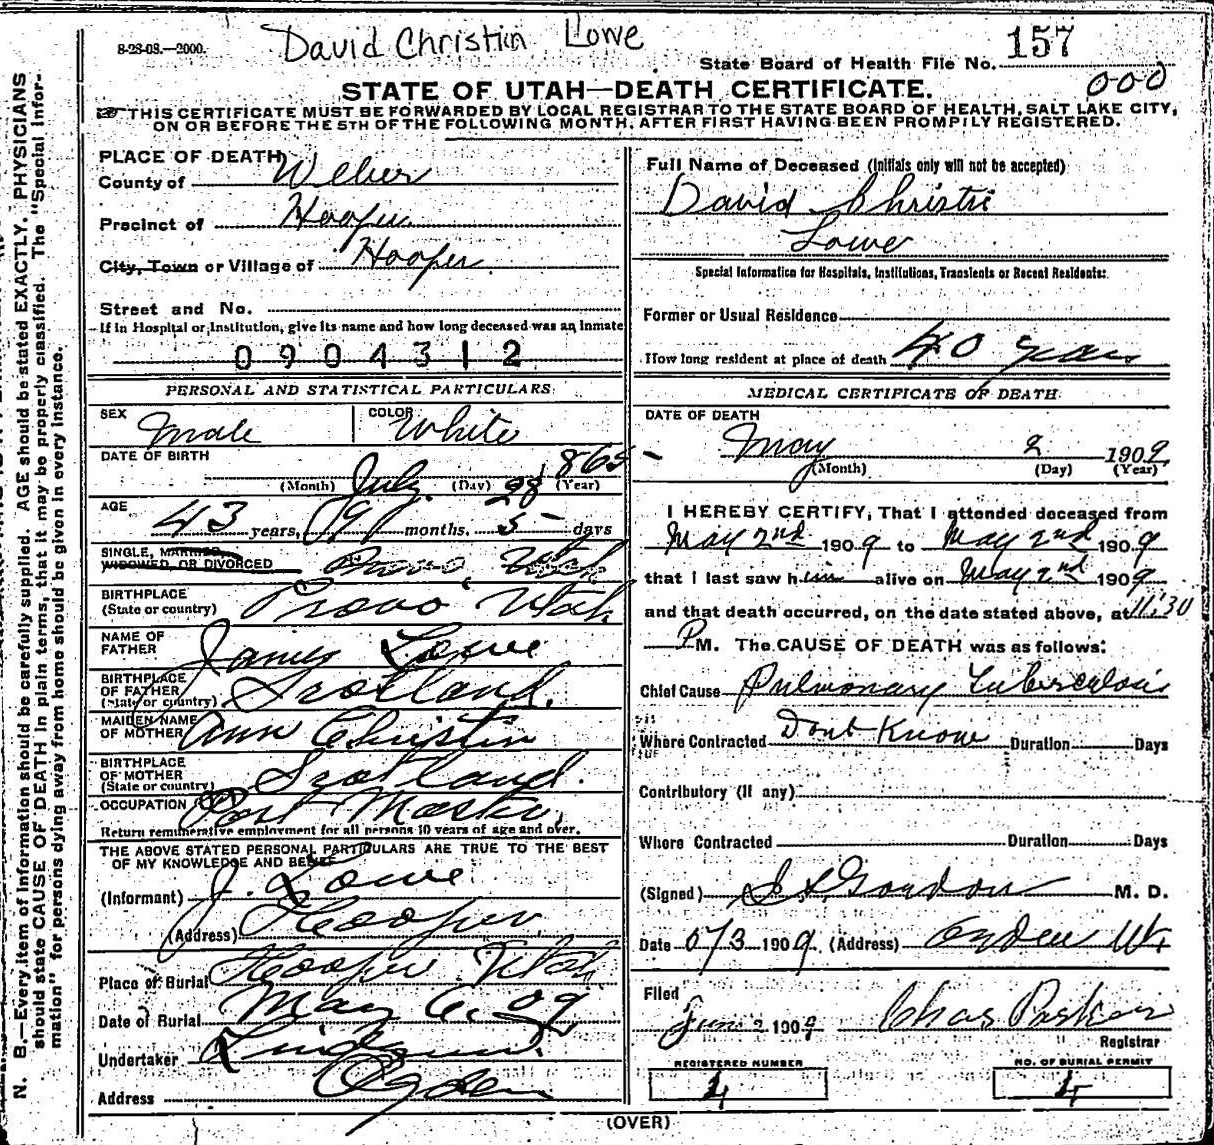 8-28-08.—2000.
David Christin Lowe
State Board of Health File No. 157
000
STATE OF UTAH—DEATH CERTIFICATE.
THIS CERTIFICATE MUST BE FORWARDED BY LOCAL REGISTRAR TO THE STATE BOARD OF HEALTH, SALT LAKE CITY,
ON OR BEFORE THE 5TH OF THE FOLLOWING MONTH, AFTER FIRST HAVING BEEN PROMPTLY REGISTERED.
N. B.—Every item of Information should be carefully supplied. AGE should be stated EXACTLY. PHYSICIANS
should state CAUSE OF DEATH in plain terms, that it may be properly classified. The "Special Infor-
mation" for persons dying away from home should be given in every instance.
PLACE OF DEATH
County of Weber
Precinct of Hooper
City, Town or Village of Hooper
Street and No.
If in Hospital or Institution, give its name and how long deceased was an Inmate
0904312
PERSONAL AND STATISTICAL PARTICULARS
SEX Male COLOR White
DATE OF BIRTH
July 28 1865
(Month) (Day) (Year)
AGE
43 years, 9 months, 5 days
SINGLE, MARRIED,
WIDOWED, OR DIVORCED Provo, Utah
BIRTHPLACE
(State or country) Provo Utah
NAME OF
FATHER James Lowe
BIRTHPLACE
OF FATHER
(State or country) Scotland.
MAIDEN NAME
OF MOTHER Ann Christin
BIRTHPLACE
OF MOTHER
(State or country) Scotland.
OCCUPATION Post Master
Return remunerative employment for all persons 10 years of age and over.
THE ABOVE STATED PERSONAL PARTICULARS ARE TRUE TO THE BEST
OF MY KNOWLEDGE AND BELIEF
(Informant) J. Lowe
(Address) Hooper
Place of Burial Hooper Utah
Date of Burial May 6. 09
Undertaker
Address Ogden
Full Name of Deceased (Initials only will not be accepted)
David Christie
Lowe
Special Information for Hospitals, Institutions, Transients or Recent Residents:
Former or Usual Residence
How long resident at place of death 40 years
MEDICAL CERTIFICATE OF DEATH
DATE OF DEATH
May 2 1909
(Month) (Day) (Year)
I HEREBY CERTIFY, That I attended deceased from
May 2nd 1909 to May 2nd 1909
that I last saw him alive on May 2nd 1909
and that death occurred, on the date stated above, at 11:30
P M. The CAUSE OF DEATH was as follows:
Chief Cause Pulmonary Tuberculosis
Where Contracted Dont Know Duration Days
Contributory (If any)
Where Contracted Duration Days
(Signed) Gordon M. D.
Date 5/3 1909. (Address) Ogden Ut.
Filed
June 2 1909 Chas Parker
Registrar
REGISTERED NUMBER
4
NO. OF BURIAL PERMIT
4
(OVER)